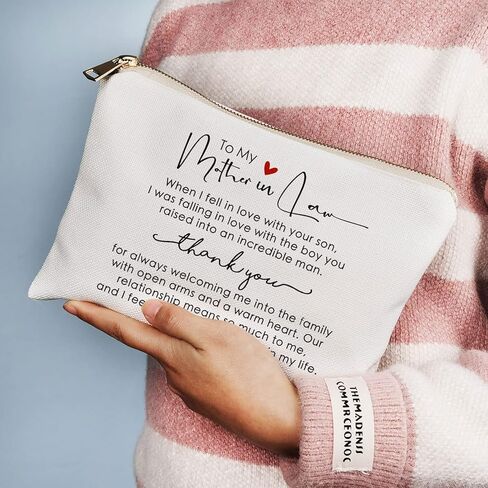 To My
Mother in Law
When I fell in love with your son,
I was falling in love with the boy you
raised into an incredible man.
thank you
for always welcoming me into the family
with open arms and a warm heart. Our
relationship means so much to me,
and I fee
in my life.
THEMADENSS
COMMRCEONOC